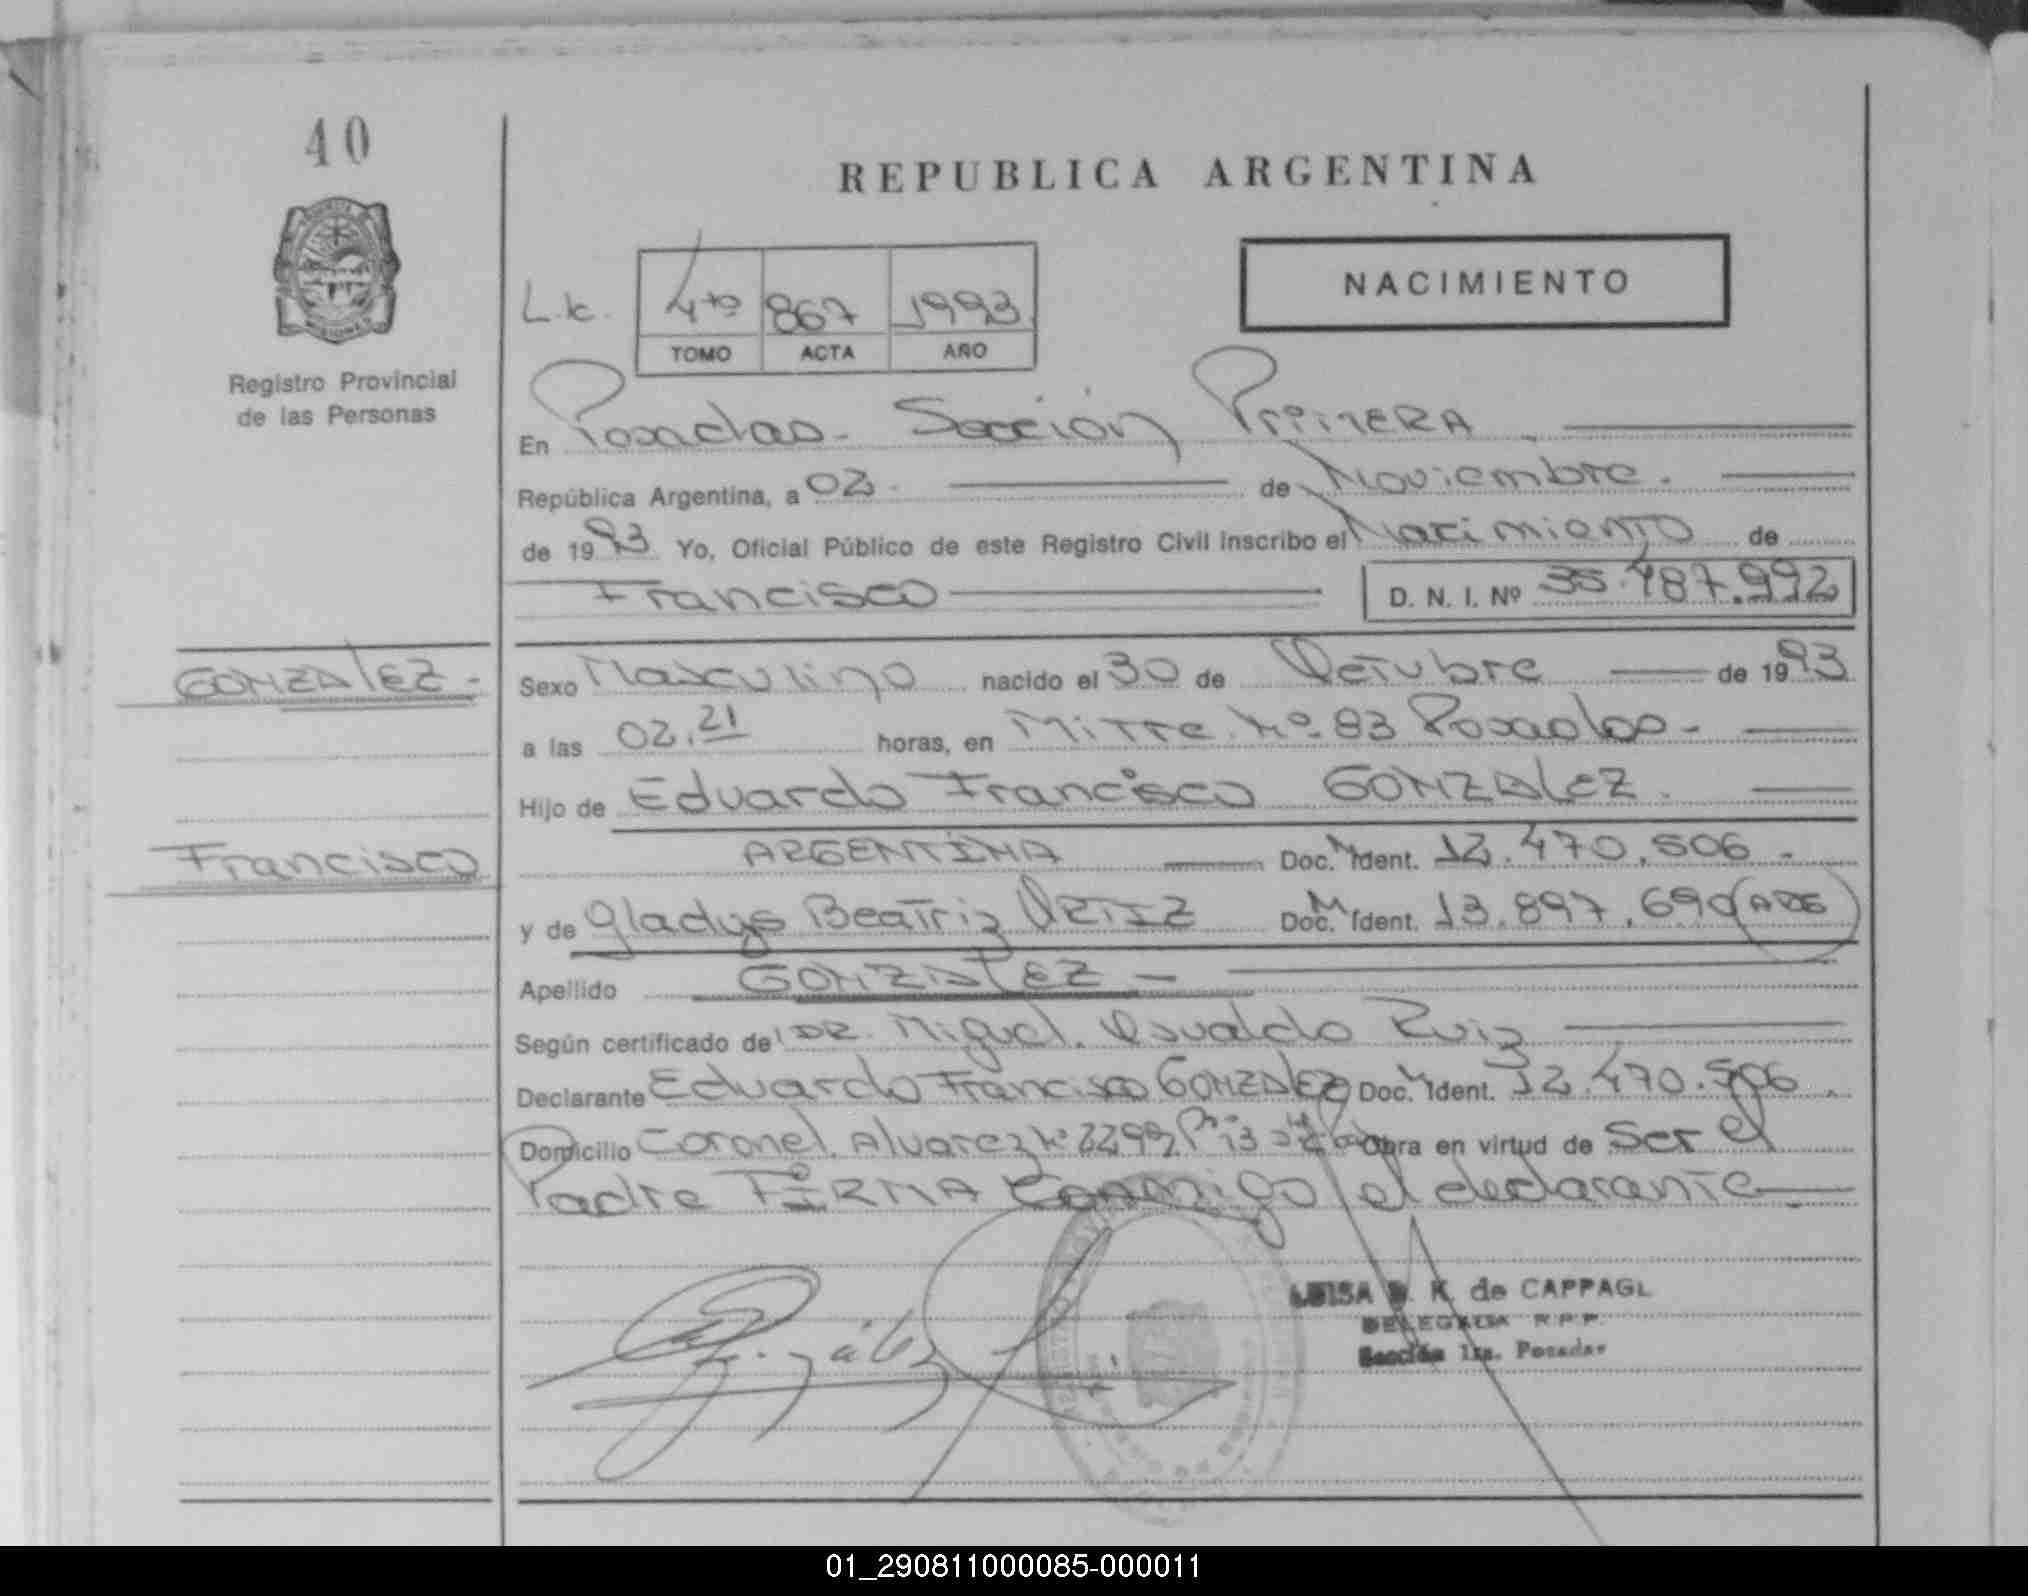 40
REPUBLICA ARGENTINA
NACIMIENTO
4to 867 1993
TOMO ACTA AÑO
Registro Provincial
de las Personas
En Posadas - Sección Primera
República Argentina, a 02 - de Noviembre.
de 1993 Yo, Oficial Público de este Registro Civil inscribo el Nacimiento de
Francisco D. N. I. Nº 35.787.992
GONZALEZ - Sexo Masculino nacido el 30 de Octubre de 1993
a las 02.21 horas, en Mitre Nº 83 Posadas -
Hijo de Eduardo Francisco GONZALEZ.
Francisco
ARGENTINA Doc. M Ident. 12.470.506 -
y de Gladys Beatriz ORTIZ Doc. M Ident. 13.897.690 (ARG
Apellido GONZALEZ -
Según certificado de DR. Miguel Osvaldo Ruiz
Declarante Eduardo Francisco GONZALEZ Doc. M Ident. 12.470.506.
Domicilio Coronel Alvarez Nº 2299 Obra en virtud de Ser el
Padre FIRMA Conmigo el declarante
LUISA K. de CAPPAGL
DELEGADA R.P.P.
Sección 1ra. Posadas
01_290811000085-000011